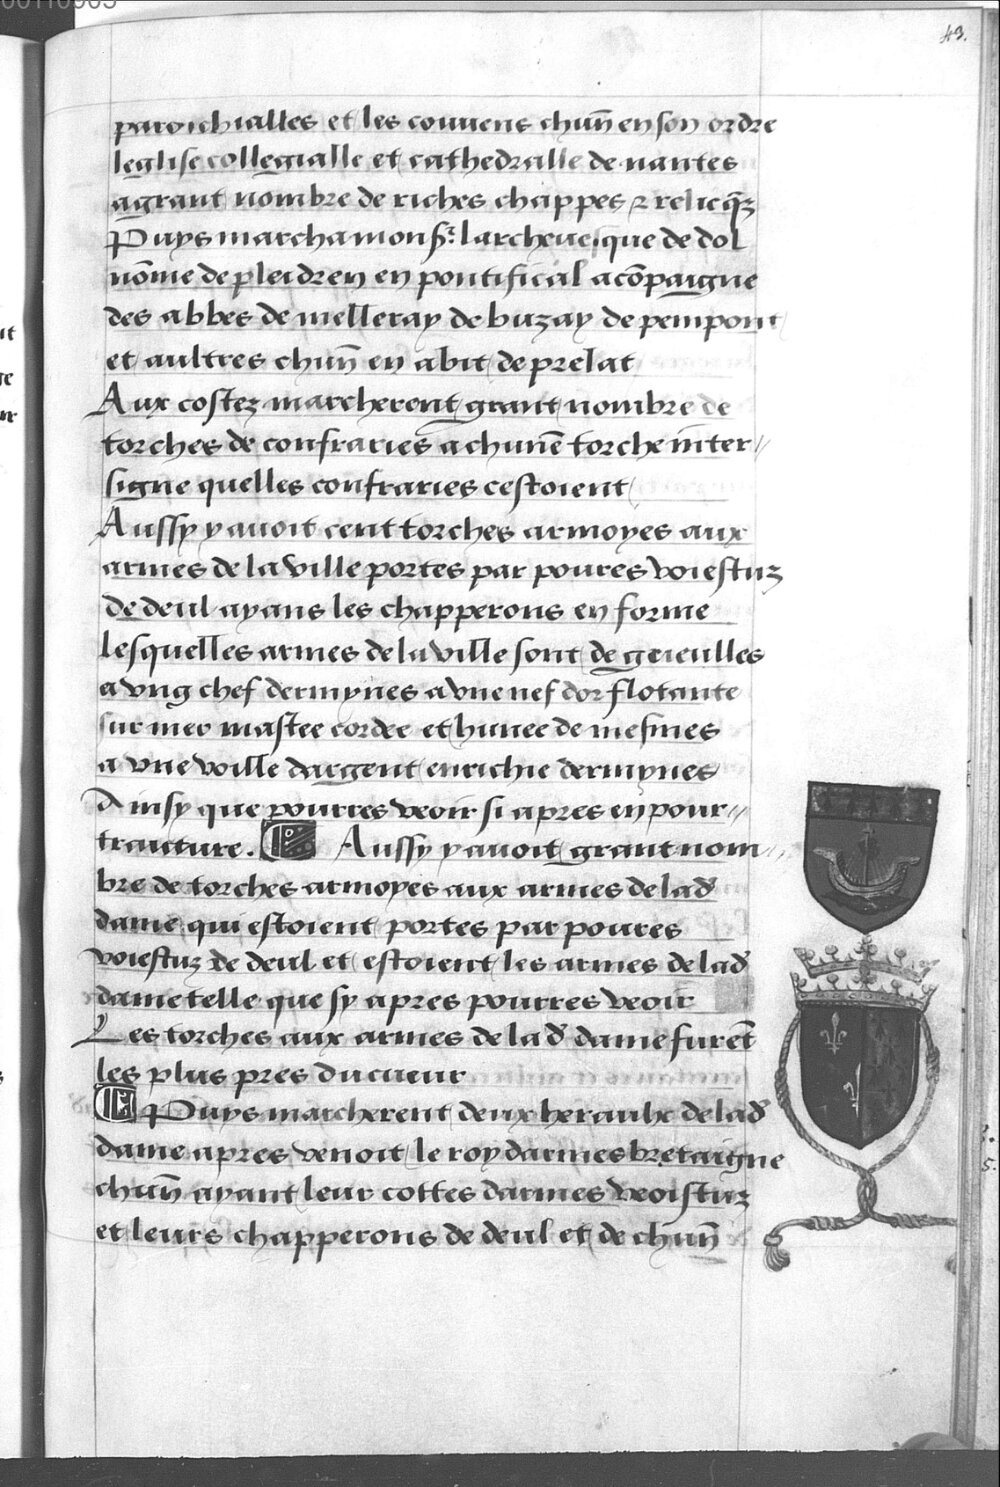 43.
parroichialles et les couuens chūn en son ordre
leglise collegialle et cathedralle de nantes
a grant nombre de riches chappes & relicq̄z
Puys marcha monsr. larcheuesque de dol
nōme de pleidren en pontifical acōpaigne
des abbes de melleray de buzay de pempont
et aultres chūn en abit de prelat
Aux costez marcherent grant nombre de
torches de confraries a chun̄e torche inter//
signe quelles confraries cestoient
Aussy y auoit cent torches armoyes aux
armes de la ville portes par poures voiestuz
de deul ayans les chapperons en forme
lesquelles armes de la ville sont de gueulles
a vng chef dermynes a vne nef dor flotante
sur mer mastee cordee et hunee de mesmes
a vne voille dargent enrichie dermynes
Ainsy que pourres veoir si apres en pour//
traiture. Aussy y auoit grant nom//
bre de torches armoyes aux armes de lad
dame qui estoient portes par poures
voiestuz de deul et estoient les armes de lad
dame telle que sy apres pourres veoir
Les torches aux armes de lad dame furēt
les plus pres du cueur
Puys marcherent deux heraulx de lad
dame apres venoit le roy darmes bretaigne
chūn ayant leur cottes darmes veoistuz
et leurs chapperons de deul et de chūn